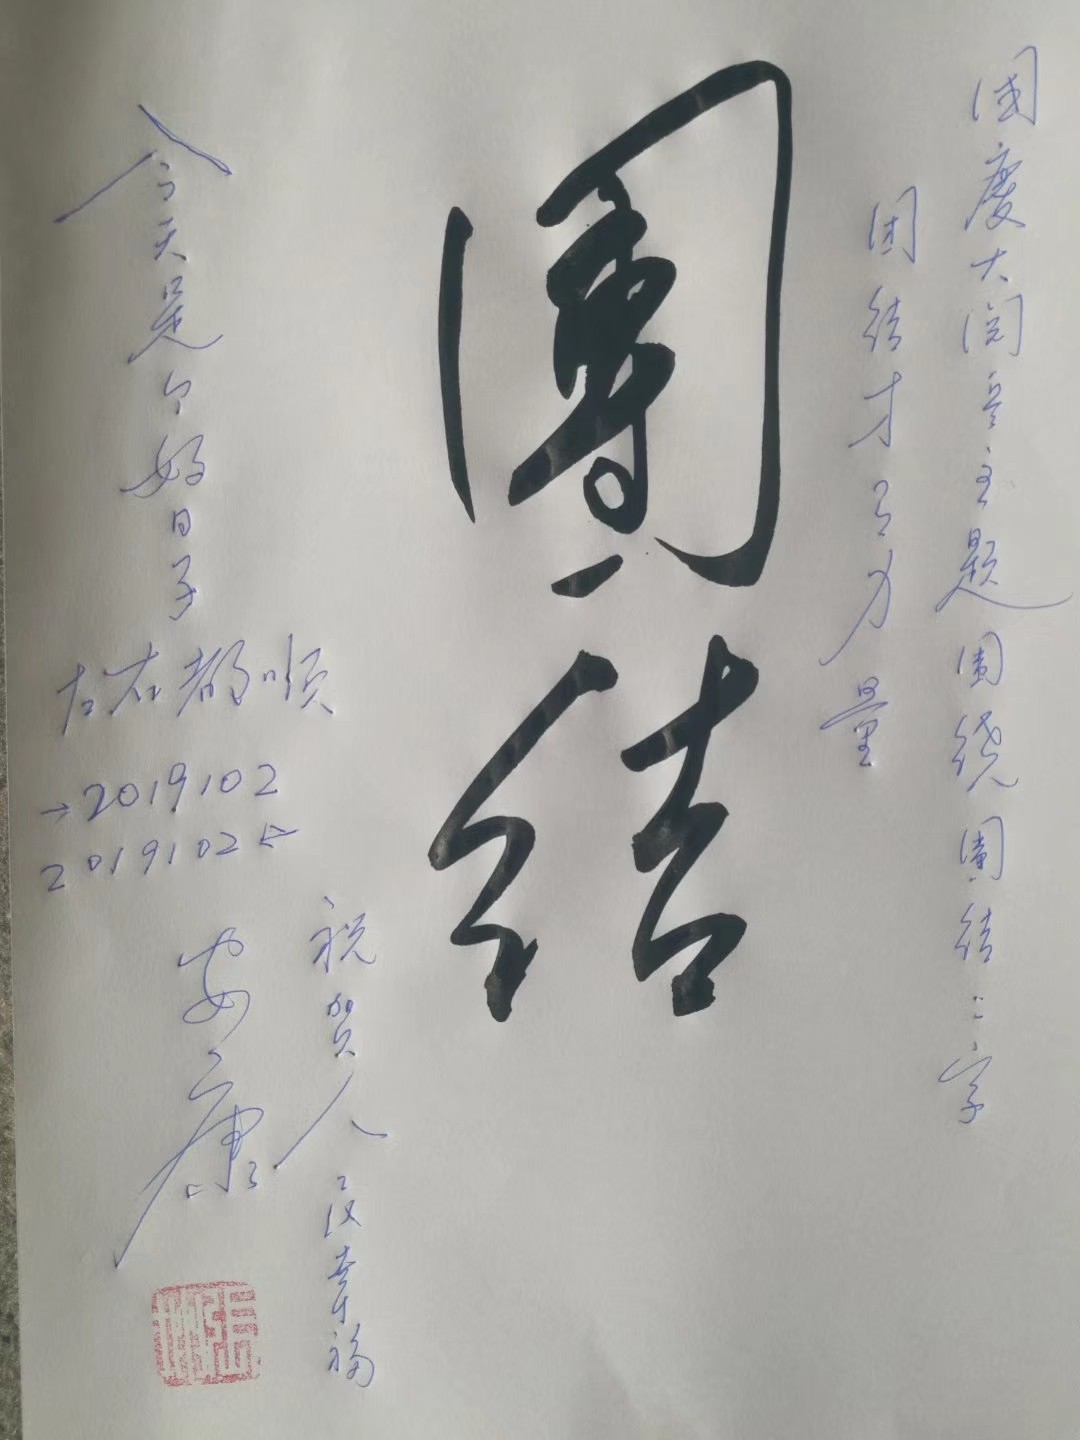 国庆大阅兵主题围绕團结二字
团结才有力量
團结
今天是个好日子
左右都顺
→2019102
2019102←
祝贺人
安康
幸福